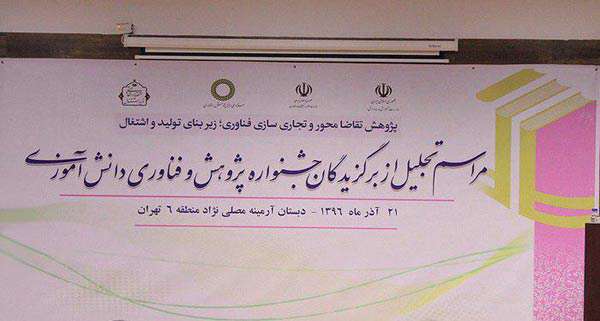 پژوهش تقاضا محور و تجاری سازی فناوری؛ زیر بنای تولید و اشتغال
مراسم تجلیل از برگزیدگان جشنواره پژوهش و فناوری دانش آموزی
۲۱ آذر ماه ۱۳۹۶ - دبستان آرمینه مصلی نژاد منطقه ۶ تهران